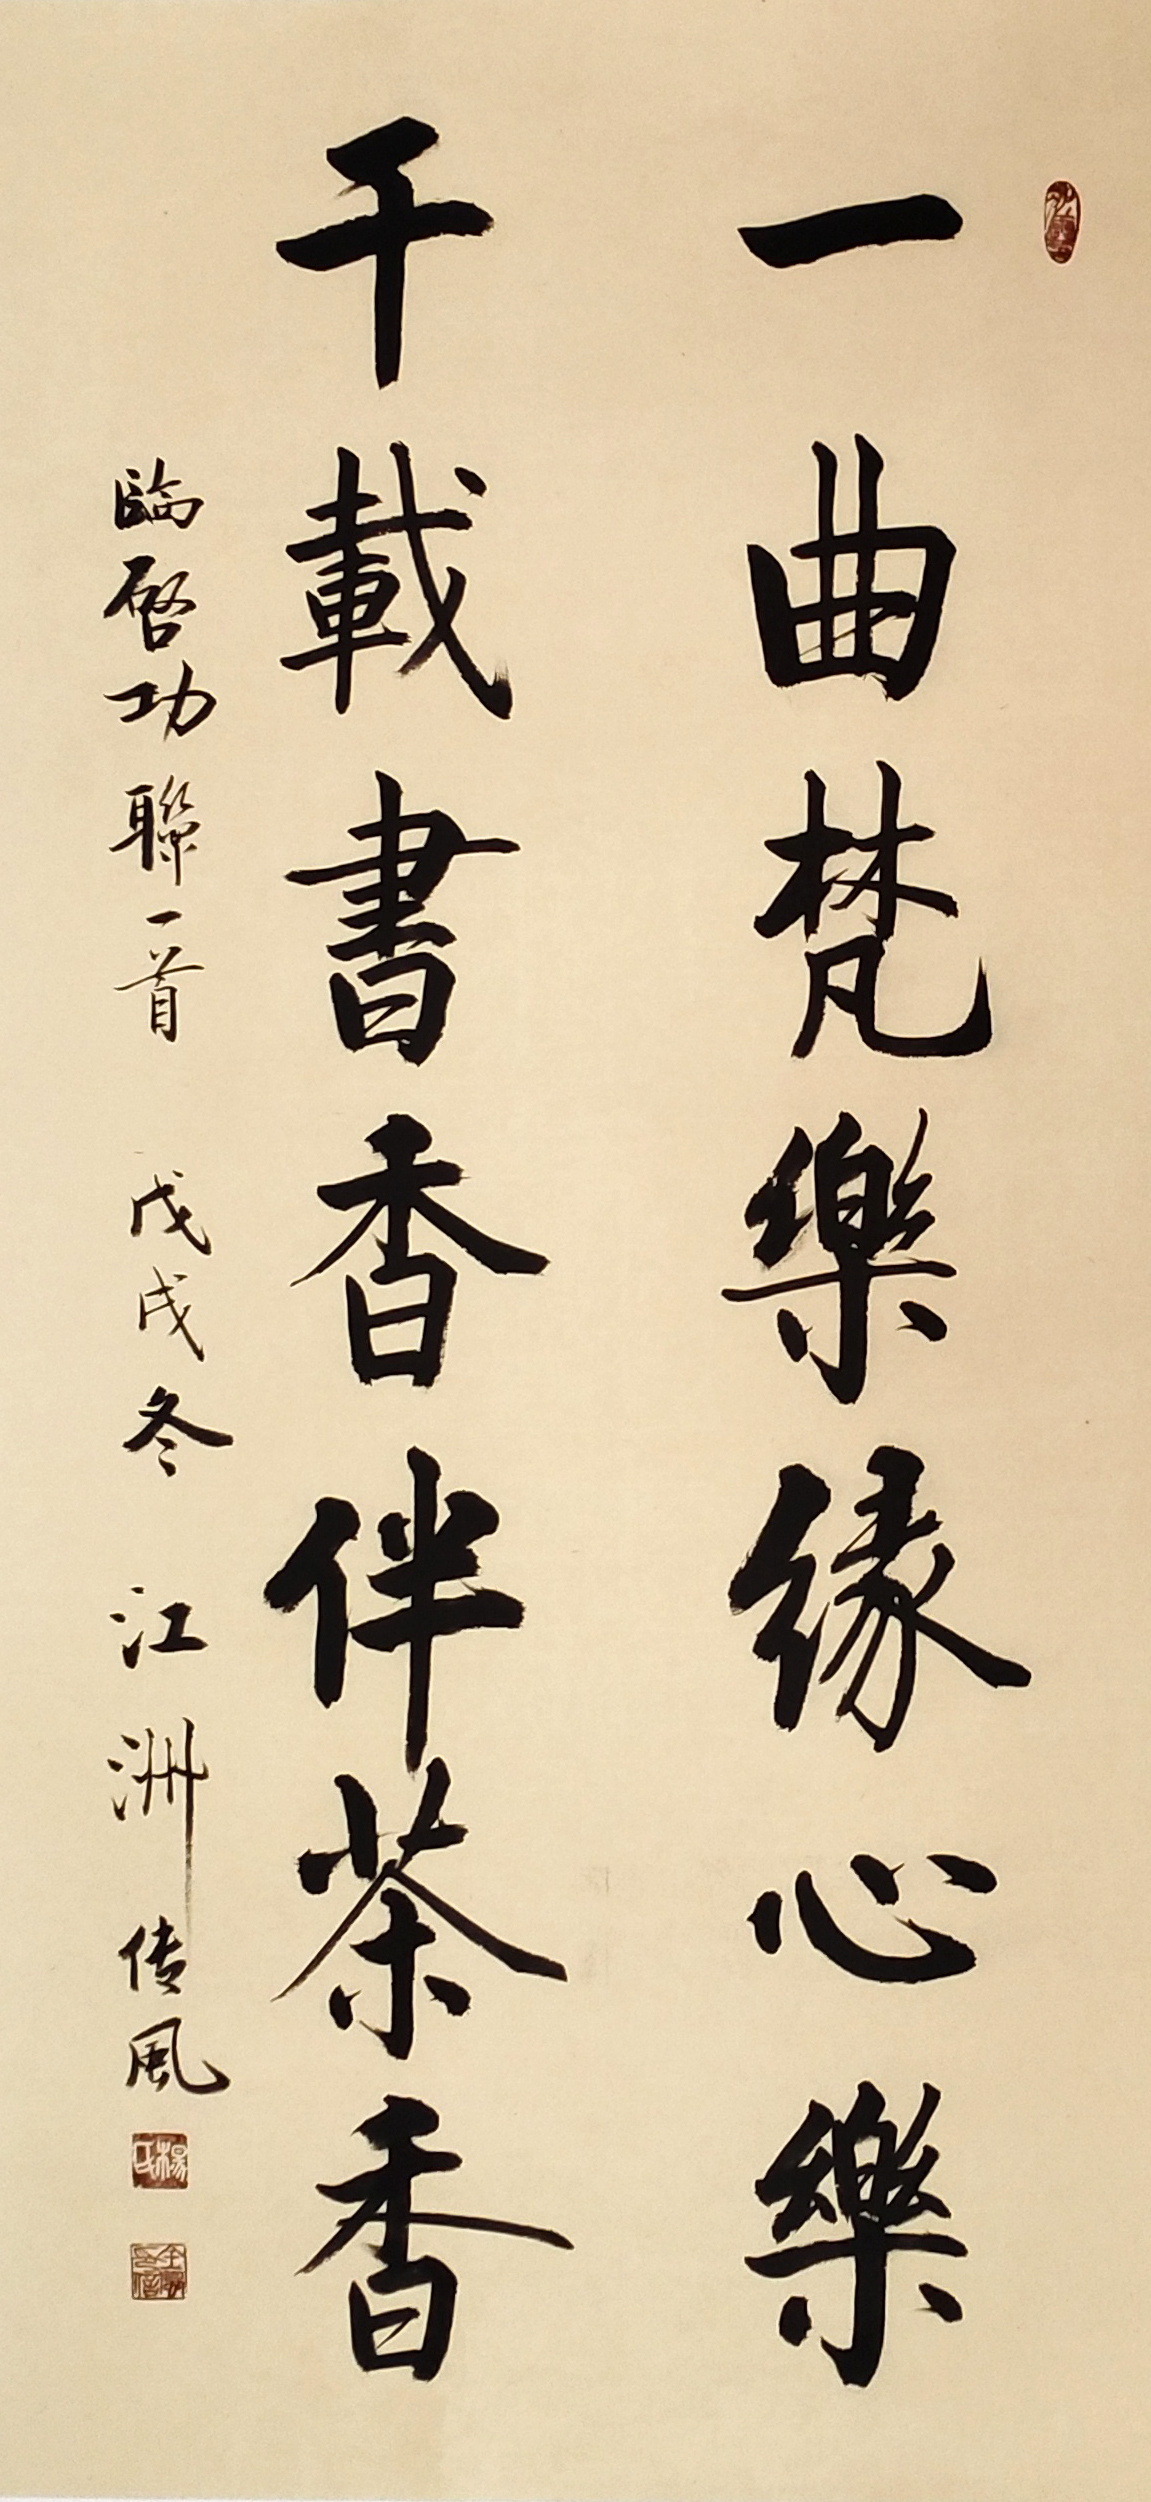 一曲梵樂緣心樂
千載書香伴茶香
臨啓功聯一首 戊戌冬 江洲传風
楊氏